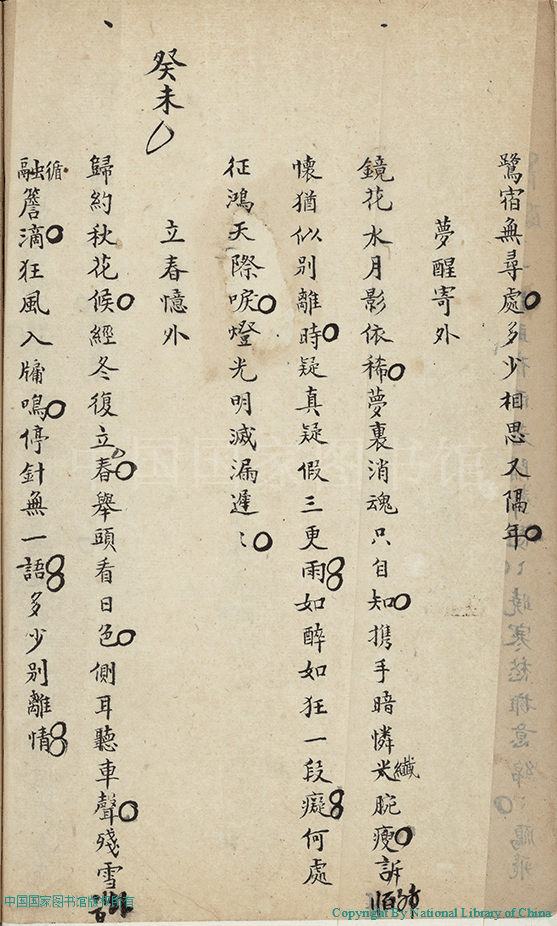 鷺宿無尋處多少相思又隔年
夢醒寄外
鏡花水月影依稀夢裏消魂只自知携手暗憐纖腕瘦訴
懷猶似别離時疑真疑假三更雨如醉如狂一段癡何處
征鴻天際唳燈光明滅漏遲〻
癸未
立春憶外
歸約秋花候經冬復立春舉頭看日色側耳聽車聲殘雪
融循簷滴狂風入牖鳴停針無一語多少别離情
中国国家图书馆版权所有
Copyright By National Library of China
中国国家图书馆